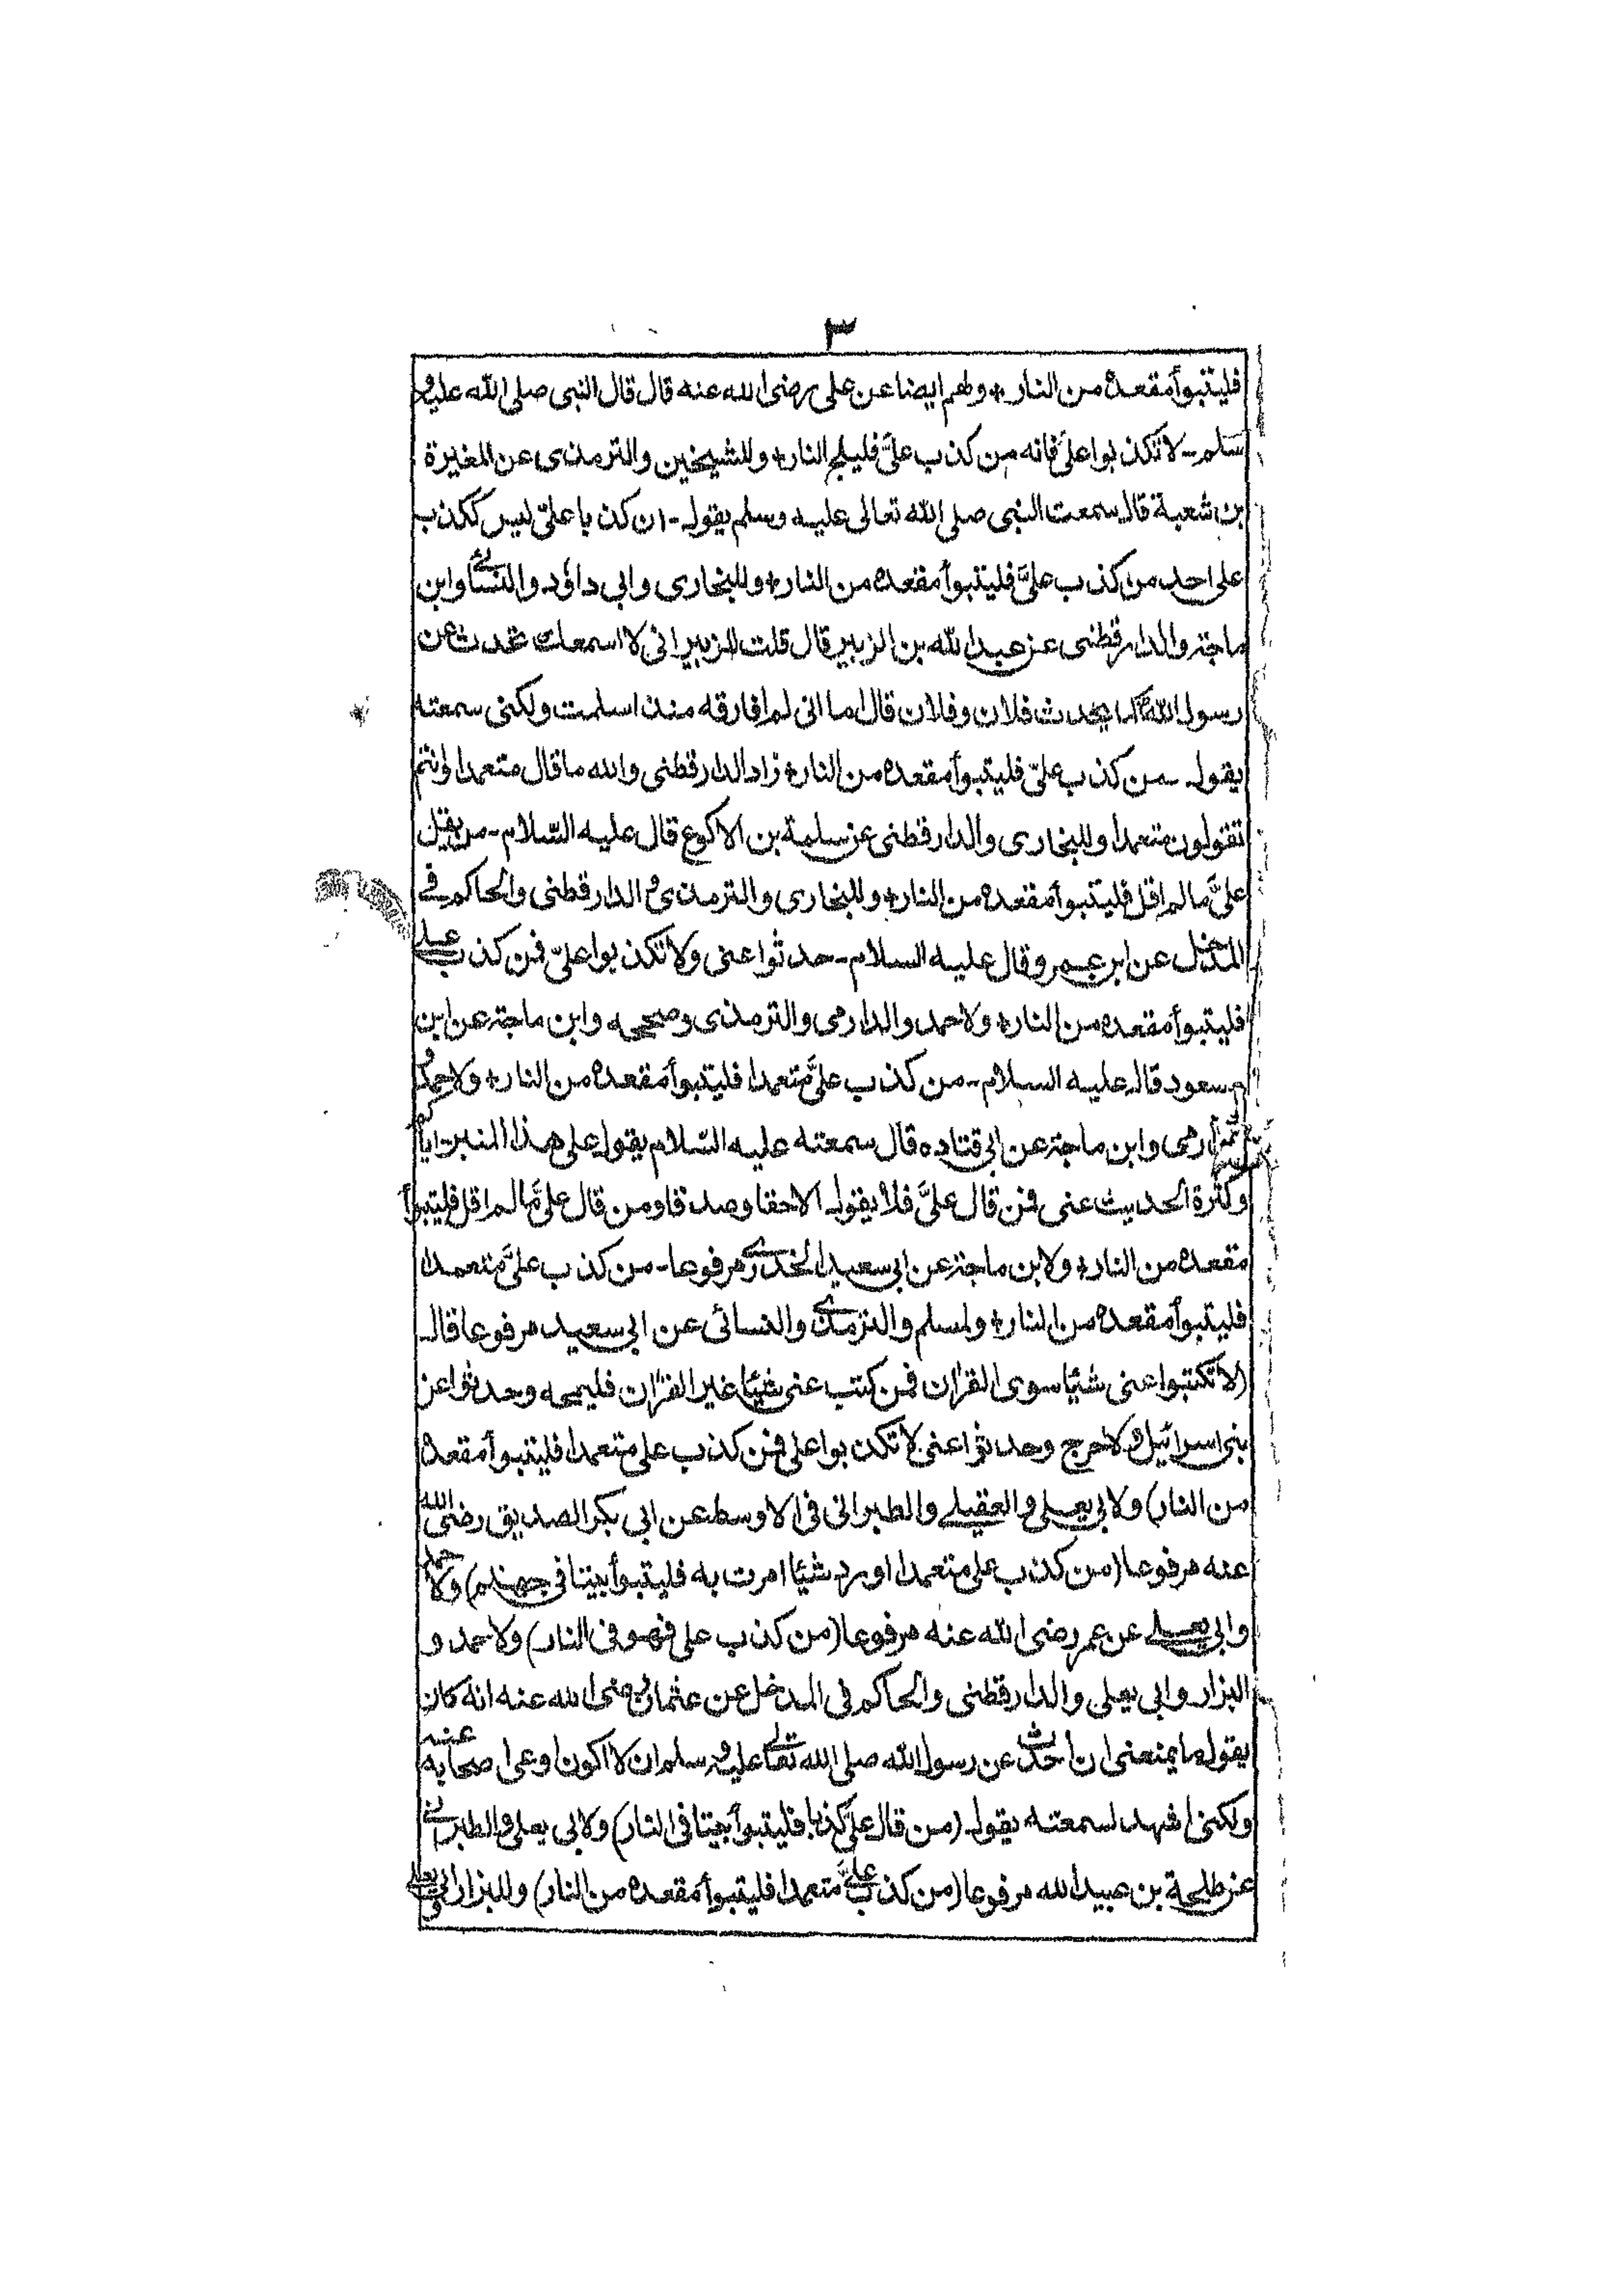 ٣
فليتبوأ مقعده من النار + ولهم ايضا عن على رضى الله عنه قال قال النبى صلى الله عليه و
سلم - لا تكذبوا على فانه من كذب علىَّ فليلج النار + وللشيخين والترمذى عن المغيرة
بن شعبة قال سمعت النبى صلى الله تعالى عليه وسلم يقول - ان كذبا علىّ ليس ككذب
على احد من كذب علىَّ فليتبوأ مقعده من النار + وللبخارى وابى داؤد والنسائى وابن
ماجة والدارقطنى عن عبد الله بن الزبير قال قلت للزبير انى لا اسمعك تحدث عن
رسول الله كما يحدث فلان وفلان قال اما انى لم افارقه منذ اسلمت ولكنى سمعته
يقول - من كذب علىّ فليتبوأ مقعده من النار + زاد الدارقطنى والله ما قال متعمدا وانتم
تقولون متعمدا وللبخارى والدارقطنى عن سلمة بن الاكوع قال عليه السّلام - من يقل
علىَّ مالم اقل فليتبوأ مقعده من النار + وللبخارى والترمذى و الدارقطنى والحاكم فے
المدخل عن ابن عمرو قال عليه السلام - حدثوا عنى ولا تكذبوا علىّ فمن كذب علے
فليتبوأ مقعده من النار + ولاحمد والدارمى والترمذى وصححه وابن ماجة عن ابن
مسعود قال عليه السلام - من كذب علىَّ متعمدا فليتبوأ مقعده من النار + ولاحمد و
الدارمى وابن ماجة عن ابى قتاده قال سمعته عليه السّلام يقول على هذا المنبر - اياكم
وكثرة الحديث عنى فمن قال علىَّ فلا يقول الاحقا وصدقا ومن قال علىَّ مالم اقل فليتبوأ
مقعده من النار + ولابن ماجة عن ابى سعيد الخدرى مرفوعا - من كذب علىَّ متعمدا
فليتبوأ مقعده من النار + ولمسلم والترمذى والنسائى عن ابى سعيد مرفوعا قال
(لا تكتبوا عنى شيئا سوى القرآن فمن كتب عنى شيئا غير القرآن فليمحه وحدثوا عن
بنى اسرائيل ولا حرج وحدثوا عنى لا تكذبوا على فمن كذب على متعمدا فليتبوأ مقعده
من النار) ولابى يعلى والعقيلے والطبرانى فى الاوسط عن ابى بكر الصديق رضى الله
عنه مرفوعا (من كذب على متعمدا او رد شيئا امرت به فليتبوأ بيتا فى جهنم) ولاحمد
وابى يعلے عن عمر رضى الله عنه مرفوعا (من كذب على فهو فى النار) ولاحمد و
البزار وابى يعلى والدارقطنى والحاكم فى المدخل عن عثمان رضى الله عنه انه كان
يقول ما يمنعنى ان احدث عن رسول الله صلى الله تعالى عليه و سلم ان لا اكون اوعى اصحابه عنه
ولكنى اشهد لسمعته يقول (من قال علىّ كذبا فليتبوأ بيتا فى النار) ولابى يعلى والطبرانے
عن طلحة بن عبيد الله مرفوعا (من كذب علےَّ متعمدا فليتبوأ مقعده من النار) وللبزار وابى يعلى